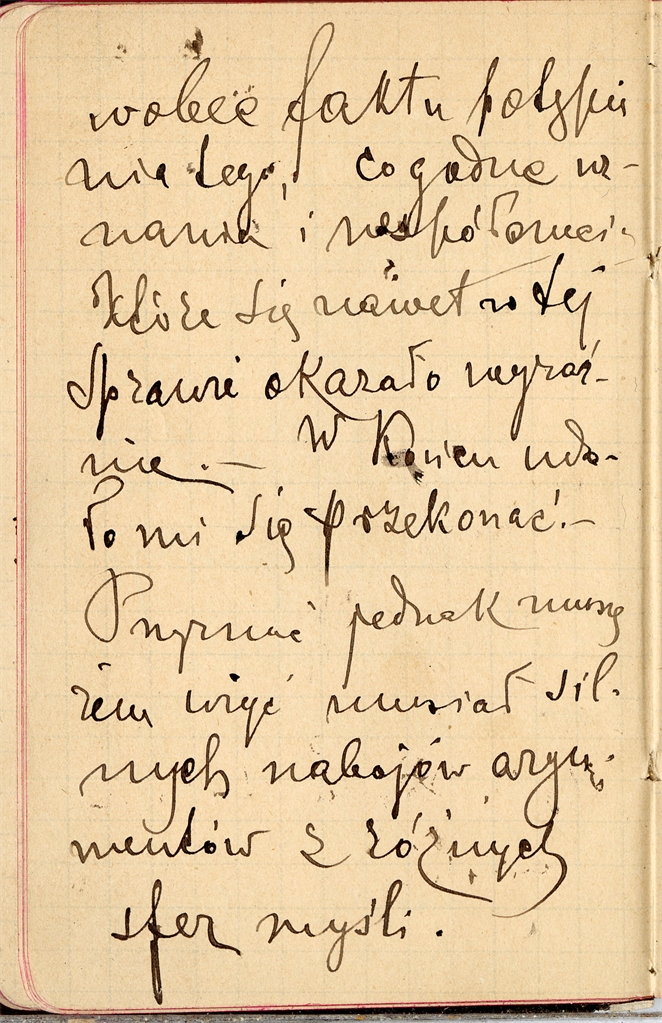 wobec faktu potępie
nia tego, co godne uz-
nania i współczucia
które się nawet w tej
sprawie okazało wyraź-
nie. — W końcu uda-
ło mi się przekonać. —
Przyznać jednak muszę
żem użyć musiał sil-
nych nabojów argu-
mentów z różnych
sfer myśli.